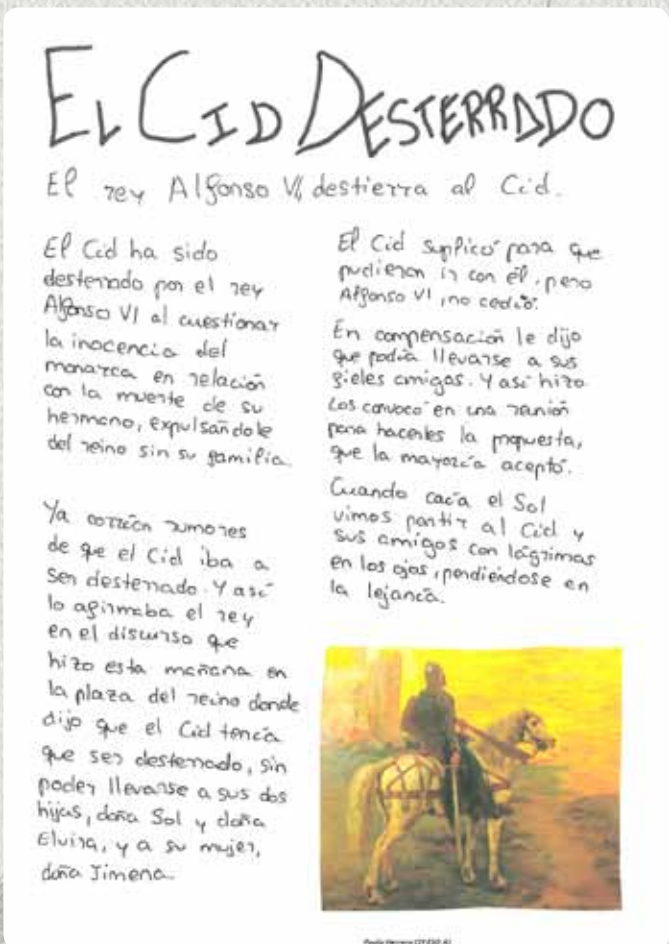 EL CID DESTERRADO
El rey Alfonso VI, destierra al Cid.
El Cid ha sido
desterrado por el rey
Alfonso VI al cuestionar
la inocencia del
monarca en relación
con la muerte de su
hermano, expulsándole
del reino sin su familia.
Ya corrían rumores
de que el Cid iba a
ser desterrado. Y así
lo afirmaba el rey
en el discurso que
hizo esta mañana en
la plaza del reino donde
dijo que el Cid tenía
que ser desterrado, sin
poder llevarse a sus dos
hijas, doña Sol y doña
Elvira, y a su mujer,
doña Jimena.
El Cid suplicó para que
pudieran ir con él, pero
Alfonso VI, no cedió.
En compensación le dijo
que podía llevarse a sus
fieles amigos. Y así hizo.
Los convocó en una reunión
para hacerles la propuesta,
que la mayoría aceptó.
Cuando caía el Sol
vimos partir al Cid y
sus amigos con lágrimas
en los ojos, perdiéndose en
la lejanía.